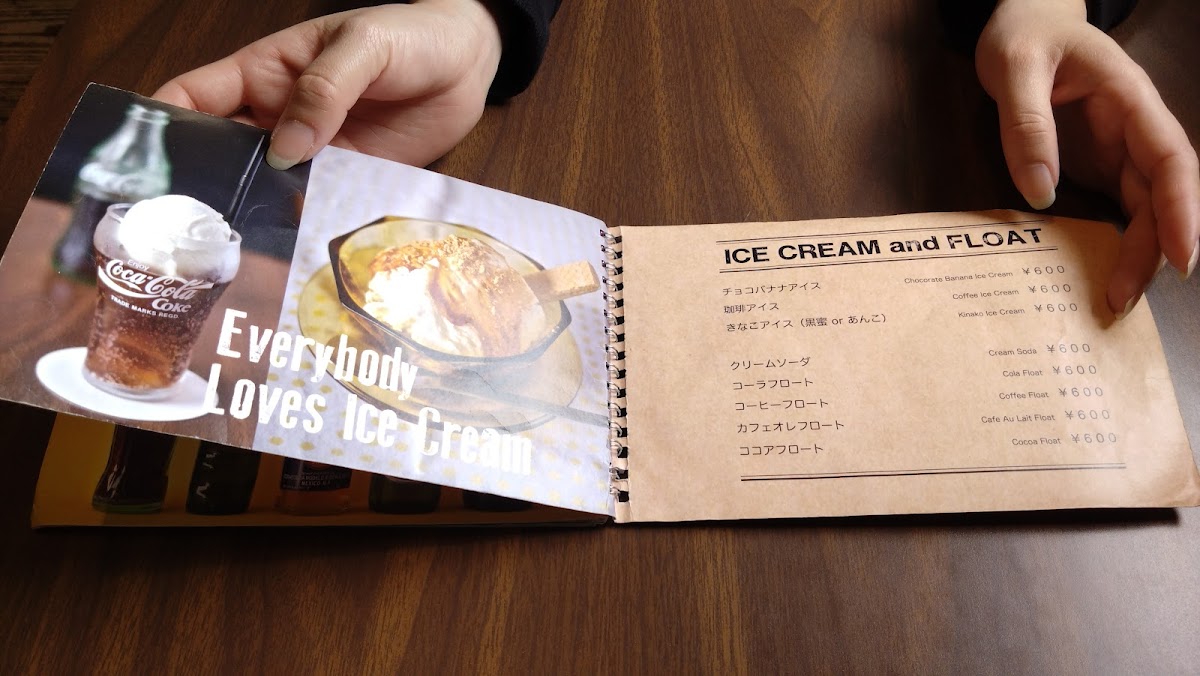 ENJOY
Coca-Cola
Coke
TRADE MARKS REGD.
Everybody
Loves Ice Cream
ICE CREAM and FLOAT
チョコバナナアイス Chocorate Banana Ice Cream ¥600
珈琲アイス Coffee Ice Cream ¥600
きなこアイス（黒蜜 or あんこ） Kinako Ice Cream ¥600
クリームソーダ Cream Soda ¥600
コーラフロート Cola Float ¥600
コーヒーフロート Coffee Float ¥600
カフェオレフロート Cafe Au Lait Float ¥600
ココアフロート Cocoa Float ¥600